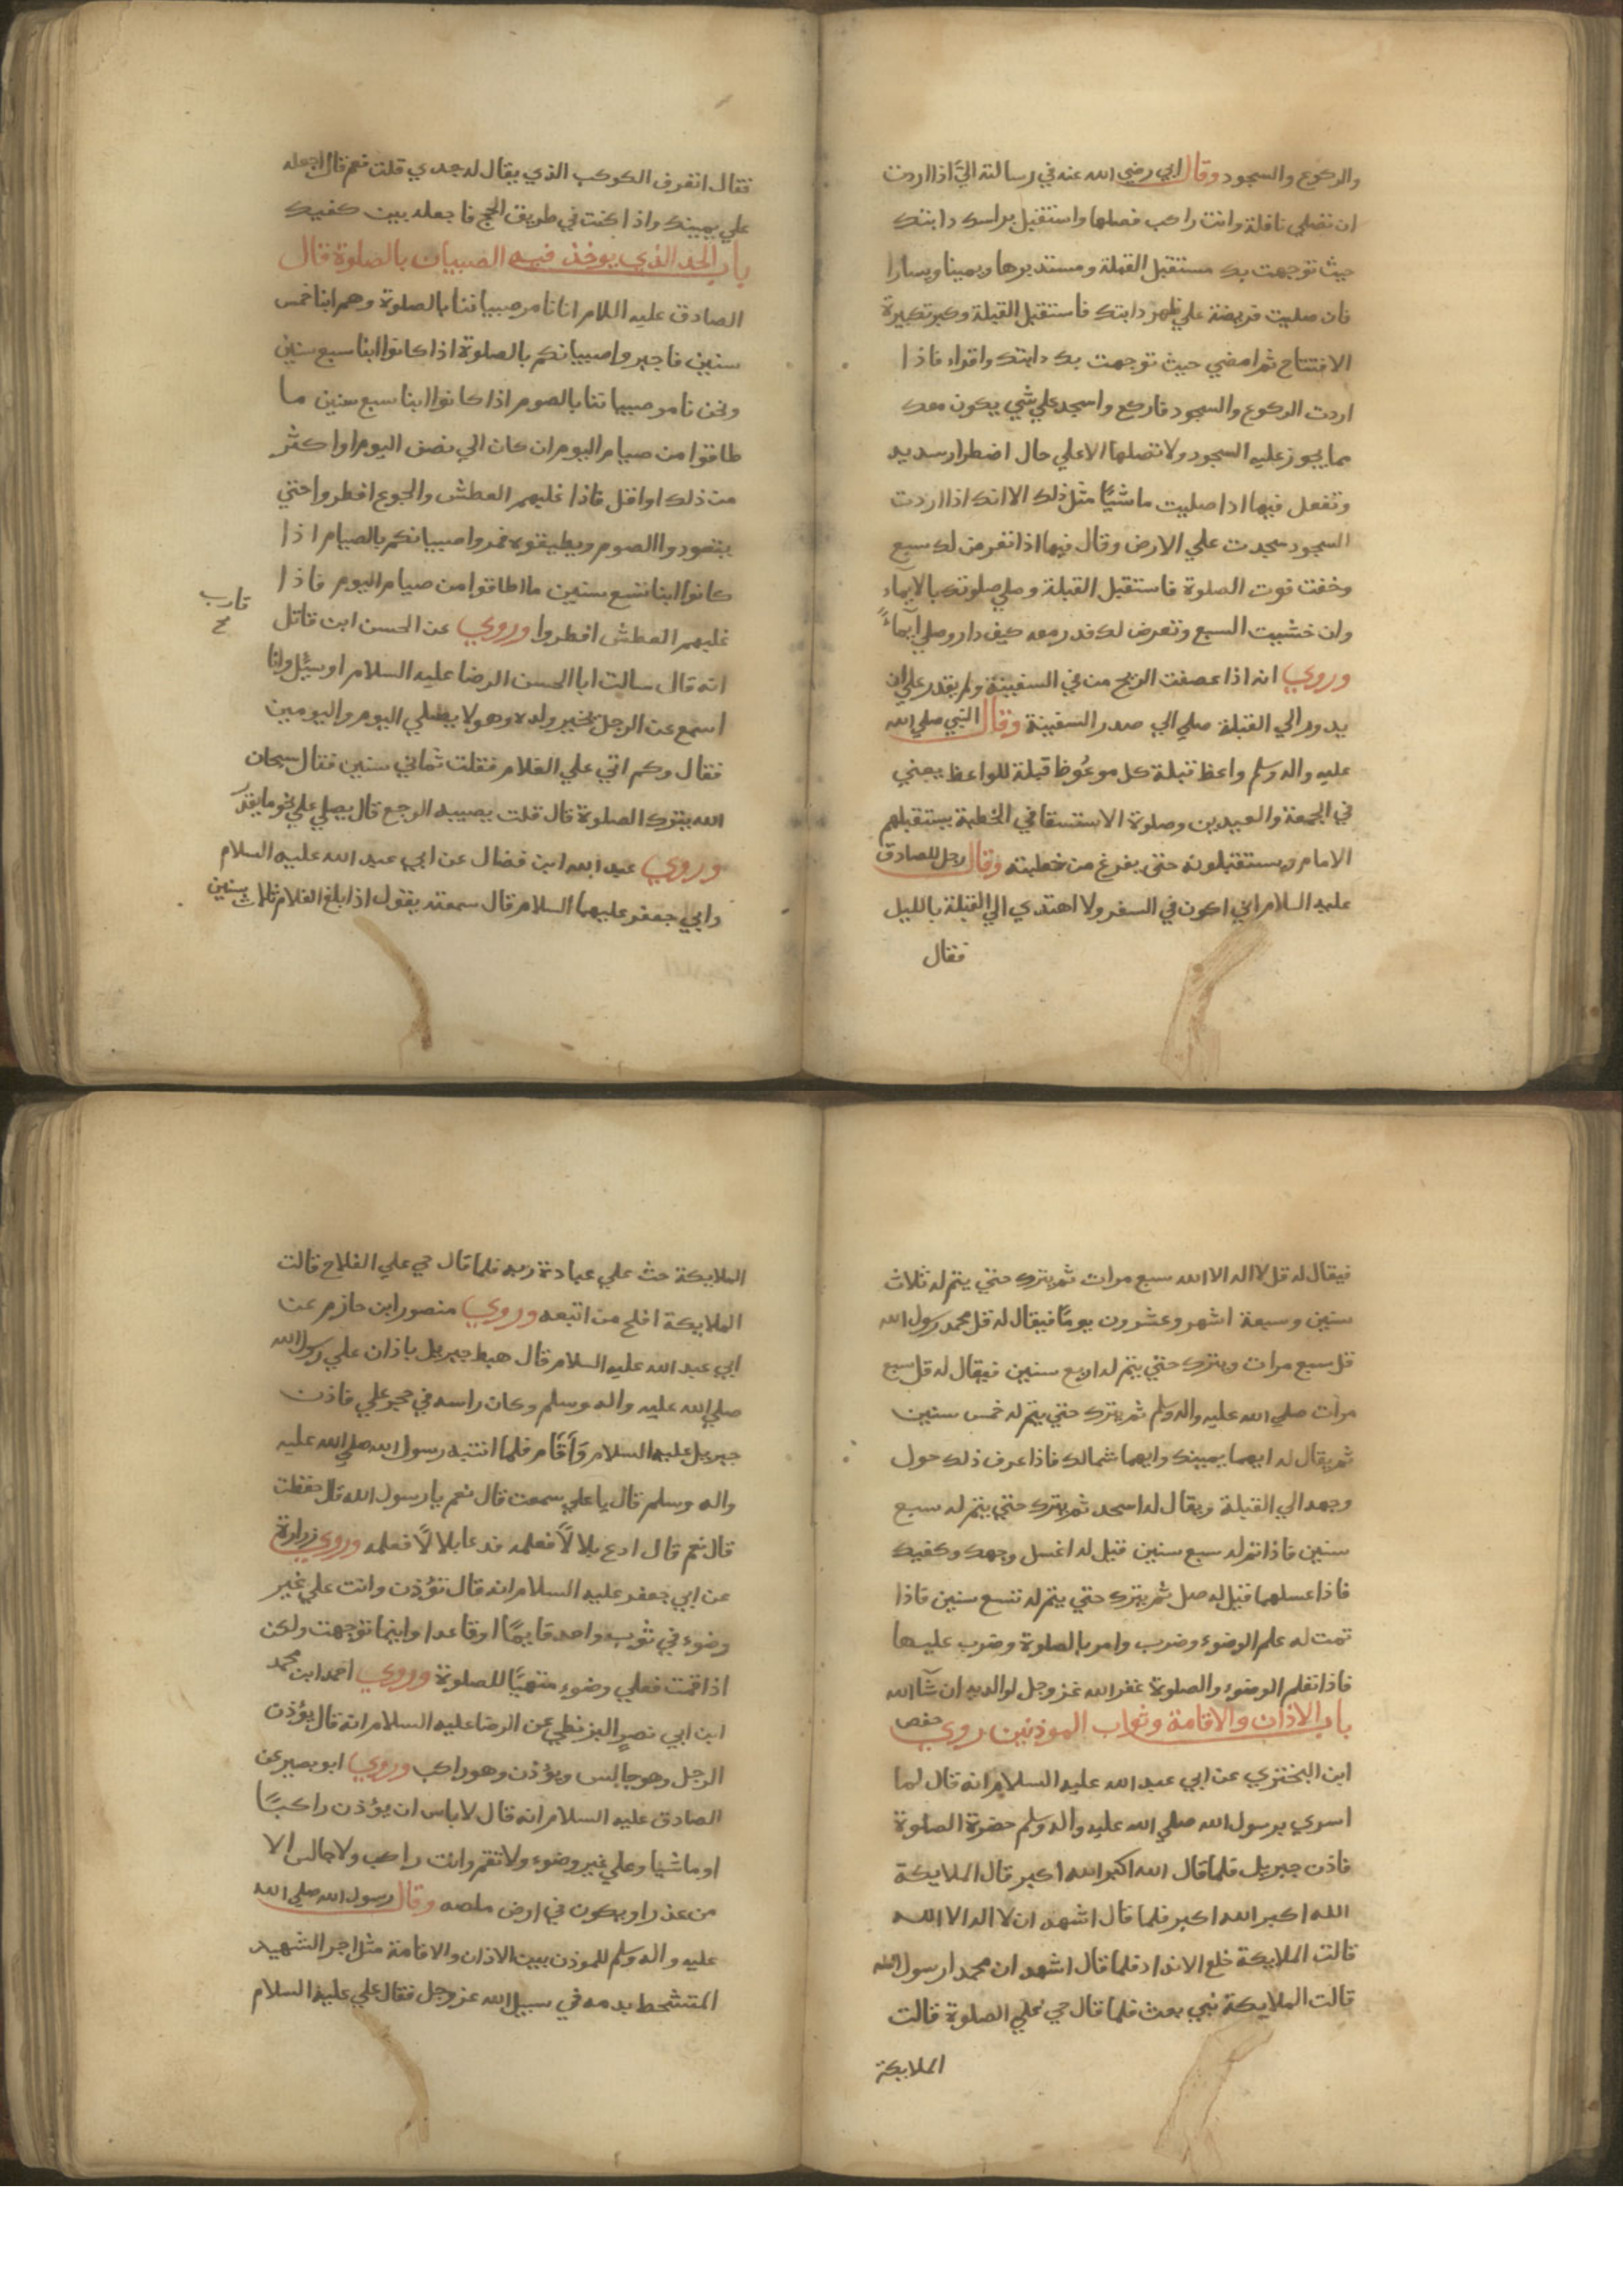 والركوع والسجود وقال ابي رضي الله عنه في رسالته اليّ اذا اردت
ان تصلي نافلة وانت راكب فصلها واستقبل براس دابتك
حيث توجهت بك مستقبل القبلة ومستدبرها ويمينا ويسارا
فان صليت فريضة علي ظهر دابتك فاستقبل القبلة وكبر تكبيرة
الافتتاح ثم امضي حيث توجهت بك دابتك واقراء فاذا
اردت الركوع والسجود فاركع واسجد علي شي يكون معك
مما يجوز عليه السجود ولا تصلها الا علي حال اضطرار سديد
وتفعل فيها اذا صليت ماشيًا مثل ذلك الا انك اذا اردت
السجود سجدت علي الارض وقال فيها اذا تعرض لك سبع
وخفت فوت الصلوة فاستقبل القبلة وصلي صلوتك بالايماء
وان خشيت السبع وتعرض لك فدر معه كيف دار وصلي ايماءً
وروي انه اذا عصفت الريح من في السفينة ولم يقدر علي ان
يدور الي القبلة صلي الي صدر السفينة وقال النبي صلي الله
عليه واله وسلم واعظ قبلة كل موعُوظ قبلة للواعظ يعني
في الجمعة والعيدين وصلوة الاستسقا في الخطبة يستقبلهم
الامام ويستقبلونه حتي يفرغ من خطبته وقال رجل للصادق
عليه السلام اني اكون في السفر ولا اهتدي الي القبلة بالليل
فقال
فقال اتعرف الكوكب الذي يقال له جدي قلت نعم قال اجعله
علي يمينك واذا كنت في طريق الحج فاجعله بين كفيك
باب الحد الذي يوخذ فيه الصبيان بالصلوة قال
الصادق عليه اللام انا نامر صبياننا بالصلوة وهم ابنا خمس
سنين فاجبروا صبيانكم بالصلوة اذا كانوا ابنا سبع سنين
ونحن نامر صبياننا بالصوم اذا كانوا ابنا سبع سنين ما
طاقوا من صيام اليوم ان كان الي نصف اليوم او اكثر
من ذلك او اقل فاذا غلبهم العطش والجوع افطروا حتي
يتعودوا الصوم ويطيقوه فمروا صبيانكم بالصيام اذا
كانوا ابنا تسع سنين ما اطاقوا من صيام اليوم فاذا
غلبهم العطش افطروا وروي عن الحسن ابن قاتل
قارب
خ
انه قال سالت ابا الحسن الرضا عليه السلام او سئل وانا
اسمع عن الرجل يخبر ولده وهو لا يصلي اليوم واليومين
فقال وكم اتي علي الغلام فقلت ثماني سنين فقال سبحان
الله يترك الصلوة قال قلت يصيبه الوجع قال يصلي علي نحو ما يقدر
وروي عبد الله ابن فضال عن ابي عبد الله عليه السلام
وابي جعفر عليهما السلام قال سمعته يقول اذا بلغ الغلام ثلاث سنين
فيقال له قل لا اله الا الله سبع مرات ثم يترك حتي يتم له ثلاث
سنين وسبعة اشهر وعشرون يومًا فيقال له قل محمد رسول الله
قل سبع مرات ويترك حتي يتم له اربع سنين فيقال له قل سبع
مرات صلي الله عليه واله وسلم ثم يترك حتي يتم له خمس سنين
ثم يقال له ايهما يمينك وايهما شمالك فاذا عرف ذلك حول
وجهه الي القبلة ويقال له اسجد ثم يترك حتي يتم له سبع
سنين فاذا تم له سبع سنين قيل له اغسل وجهك وكفيك
فاذا غسلهما قيل له صل ثم يترك حتي يتم له تسع سنين فاذا
تمت له علم الوضوء وضرب وامر بالصلوة وضرب عليها
فاذا تعلم الوضوء والصلوة غفر الله عز وجل لوالديه ان شآ الله
باب الاذان والاقامة وثواب الموذنين روي حفص
ابن البختري عن ابي عبد الله عليه السلام انه قال لما
اسري برسول الله صلي الله عليه واله وسلم حضرة الصلوة
فاذن جبريل فلما قال الله اكبر الله اكبر قال الملايكة
الله اكبر الله اكبر فلما قال اشهد ان لا اله الا الله
قالت الملايكة خلع الانداد فلما قال اشهد ان محمدا رسول الله
قالت الملايكة نبي بعث فلما قال حي علي الصلوة قالت
الملايكة
الملايكة حث علي عبادة ربه فلما قال حي علي الفلاح قالت
الملايكة افلح من اتبعه وروي منصور ابن حازم عن
ابي عبد الله عليه السلام قال هبط جبريل باذان علي رسول الله
صلي الله عليه واله وسلم وكان راسه في حجر علي فاذن
جبريل عليه السلام وَاَقَام فلما انتبه رسول الله صلي الله عليه
واله وسلم قال يا علي سمعت قال نعم يا رسول الله قال حفظت
قال نعم قال ادع بلالًا فعلمه فدعا بلالا لًا فعلمه وروي زرارة
عن ابي جعفر عليه السلام انه قال تؤذن وانت علي غير
وضوء في ثوب واحد قايمًا او قاعدا واينما توجهت ولكن
اذا قمت فعلي وضوء متهيًا للصلوة وروي احمد ابن محمد
ابن ابي نصر البزنطي عن الرضا عليه السلام انه قال يؤذن
الرجل وهو جالس ويؤذن وهو راكب وروي ابو بصير عن
الصادق عليه السلام انه قال لا باس ان يؤذن راكبًا
او ماشيا وعلي غير وضوء ولا تقم وانت راكب ولا جالس الا
من عذر او يكون في ارض ملصه وقال رسول الله صلي الله
عليه واله وسلم للموذن بين الاذان والاقامة مثل اجر الشهيد
المتشحط بدمه في سبيل الله عز وجل فقال علي عليه السلام